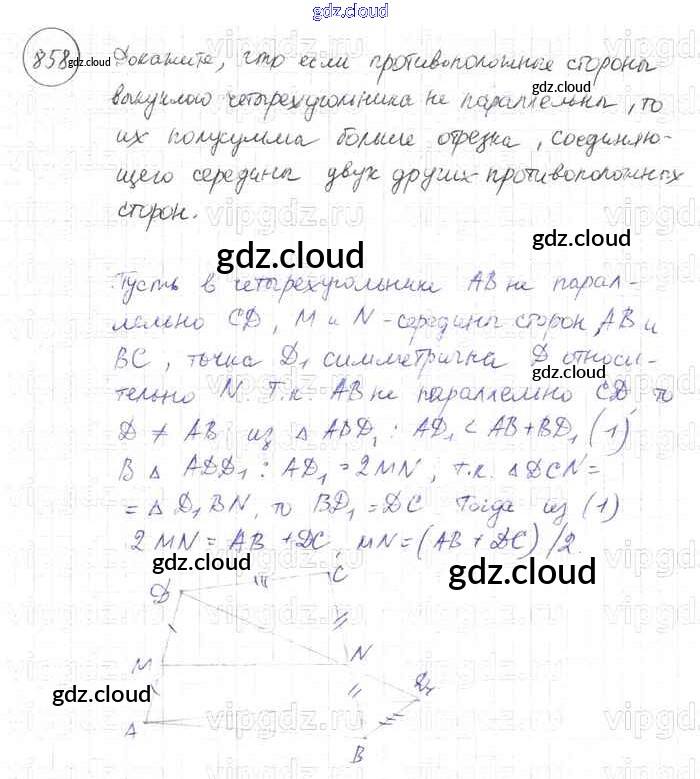 gdz.cloud
858
gdz.cloud
Докажите, что если противоположные стороны
gdz.cloud
выпуклого четырехугольника не параллельны, то
их полусумма больше отрезка, соединяю-
щего середины двух других противоположных
сторон.
vipgdz.ru
gdz.cloud
Пусть в четырехугольнике AB не парал-
лельно CD, M и N - середины сторон AB и
BC, точка D₁ симметрична D относи-
gdz.cloud
тельно N. Т.к. AB не параллельно CD, то
D ≠ AB из △ ABD₁ : AD₁ < AB + BD₁ (1)
В △ ADD₁ : AD₁ = 2MN, т.к. △DCN =
= △ D₁BN, то BD₁ = DC Тогда из (1)
2MN = AB + DC, MN = (AB + DC)/2.
gdz.cloud
gdz.cloud
D
C
M
N
gdz.cloud
D₁
A
B